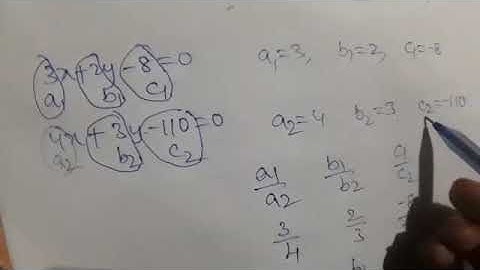 3x+2y-8=0
a1 b1 c1
4x+3y-110=0
a2 b2 c2
a1=3, b1=2, c1=-8
a2=4 b2=3 c2=-110
a1/a2 b1/b2 c1/c2
3/4 2/3